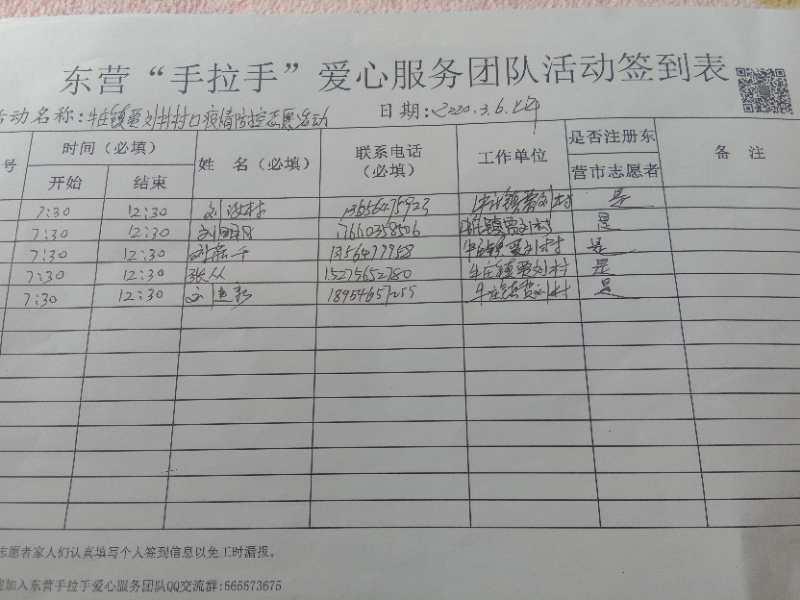 东营“手拉手”爱心服务团队活动签到表
活动名称:牛庄镇贾刘村村口疫情防控志愿活动 日期:2020.3.6.上午
号 时间(必填) 姓 名(必填) 联系电话(必填) 工作单位 是否注册东营市志愿者 备 注
开始 结束
7:30 12:30 牛庄镇贾刘村 是
7:30 12:30 17660358506 牛庄镇贾刘村 是
7:30 12:30 牛庄镇贾刘村 是
7:30 12:30 张从 15275652780 牛庄镇贾刘村 是
7:30 12:30 18954657255 牛庄镇贾刘村 是
志愿者家人们认真填写个人签到信息以免工时漏报。
加入东营手拉手爱心服务团队QQ交流群:565573675